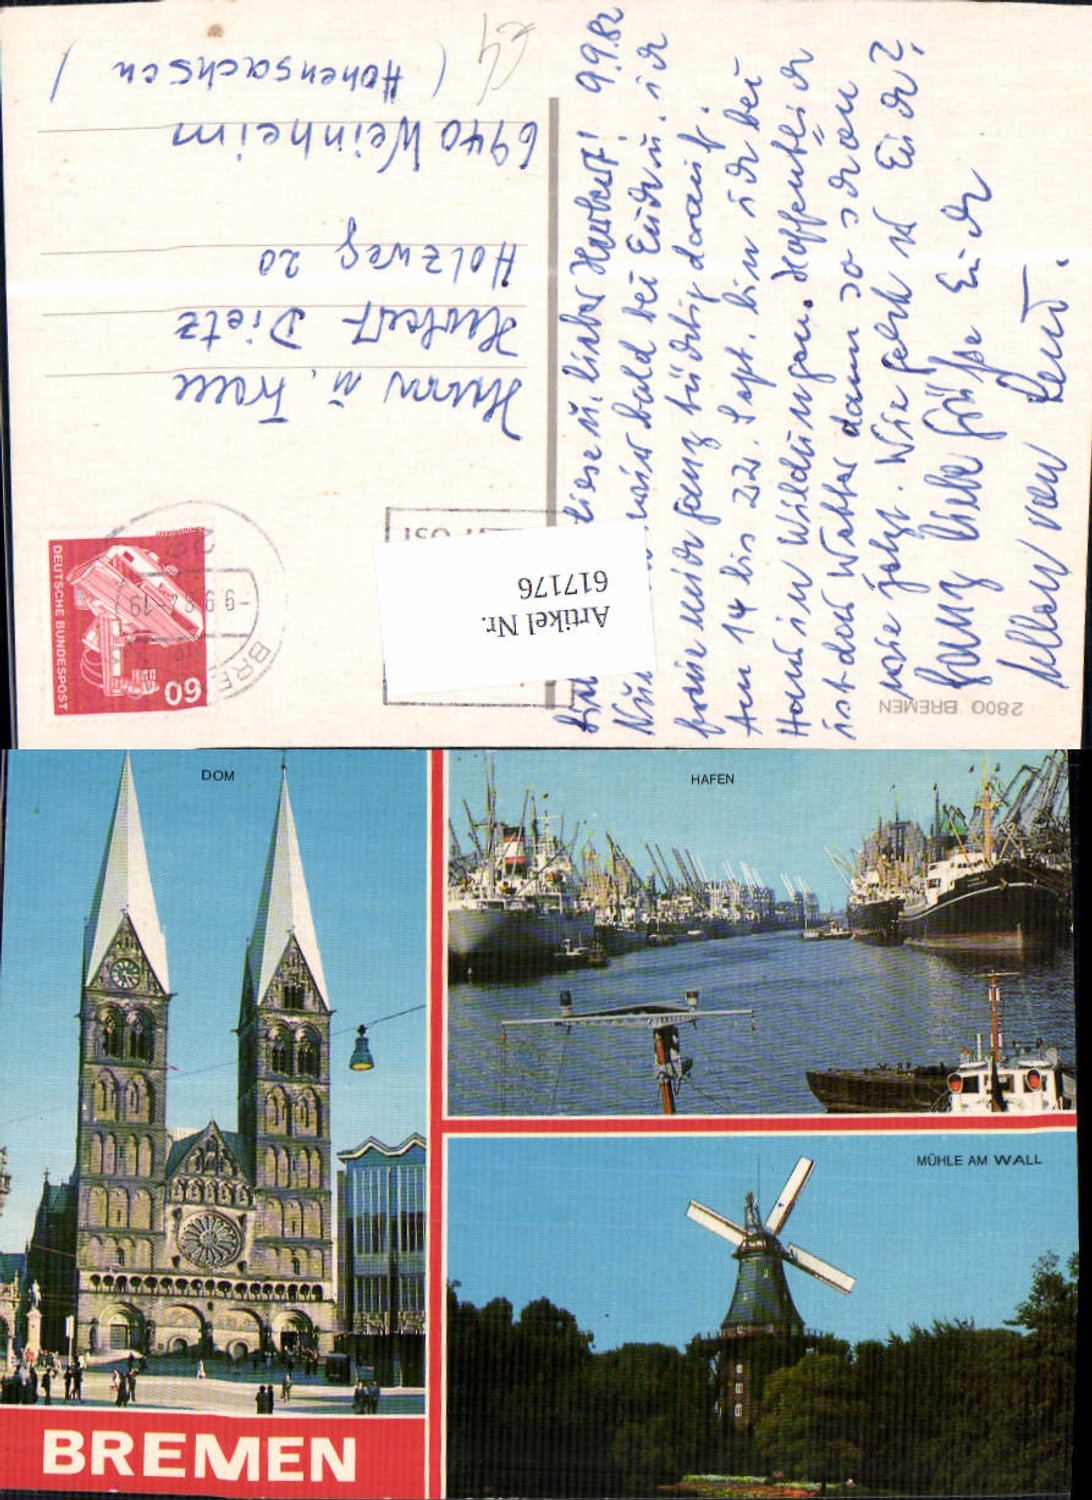 9.9.82
u. lieber Herbert!
bald bei Euch u. ich
freue mich ganz tüchtig darauf.
Am 14 bis 22. Sept. bin ich bei
Hans in Wildungen. Hoffentlich
ist das Wetter dann so schön
wie jetzt. Wie geht es Euch?
Ganz liebe Grüße Euch
allen von
Herrn u. Frau
Herbert Dietz
Holzweg 20
6940 Weinheim
(Hohensachsen)
DEUTSCHE BUNDESPOST
60
-9.9.82-19
28
BRE
Artikel Nr.
617176
2800 BREMEN
DOM
HAFEN
MÜHLE AM WALL
BREMEN